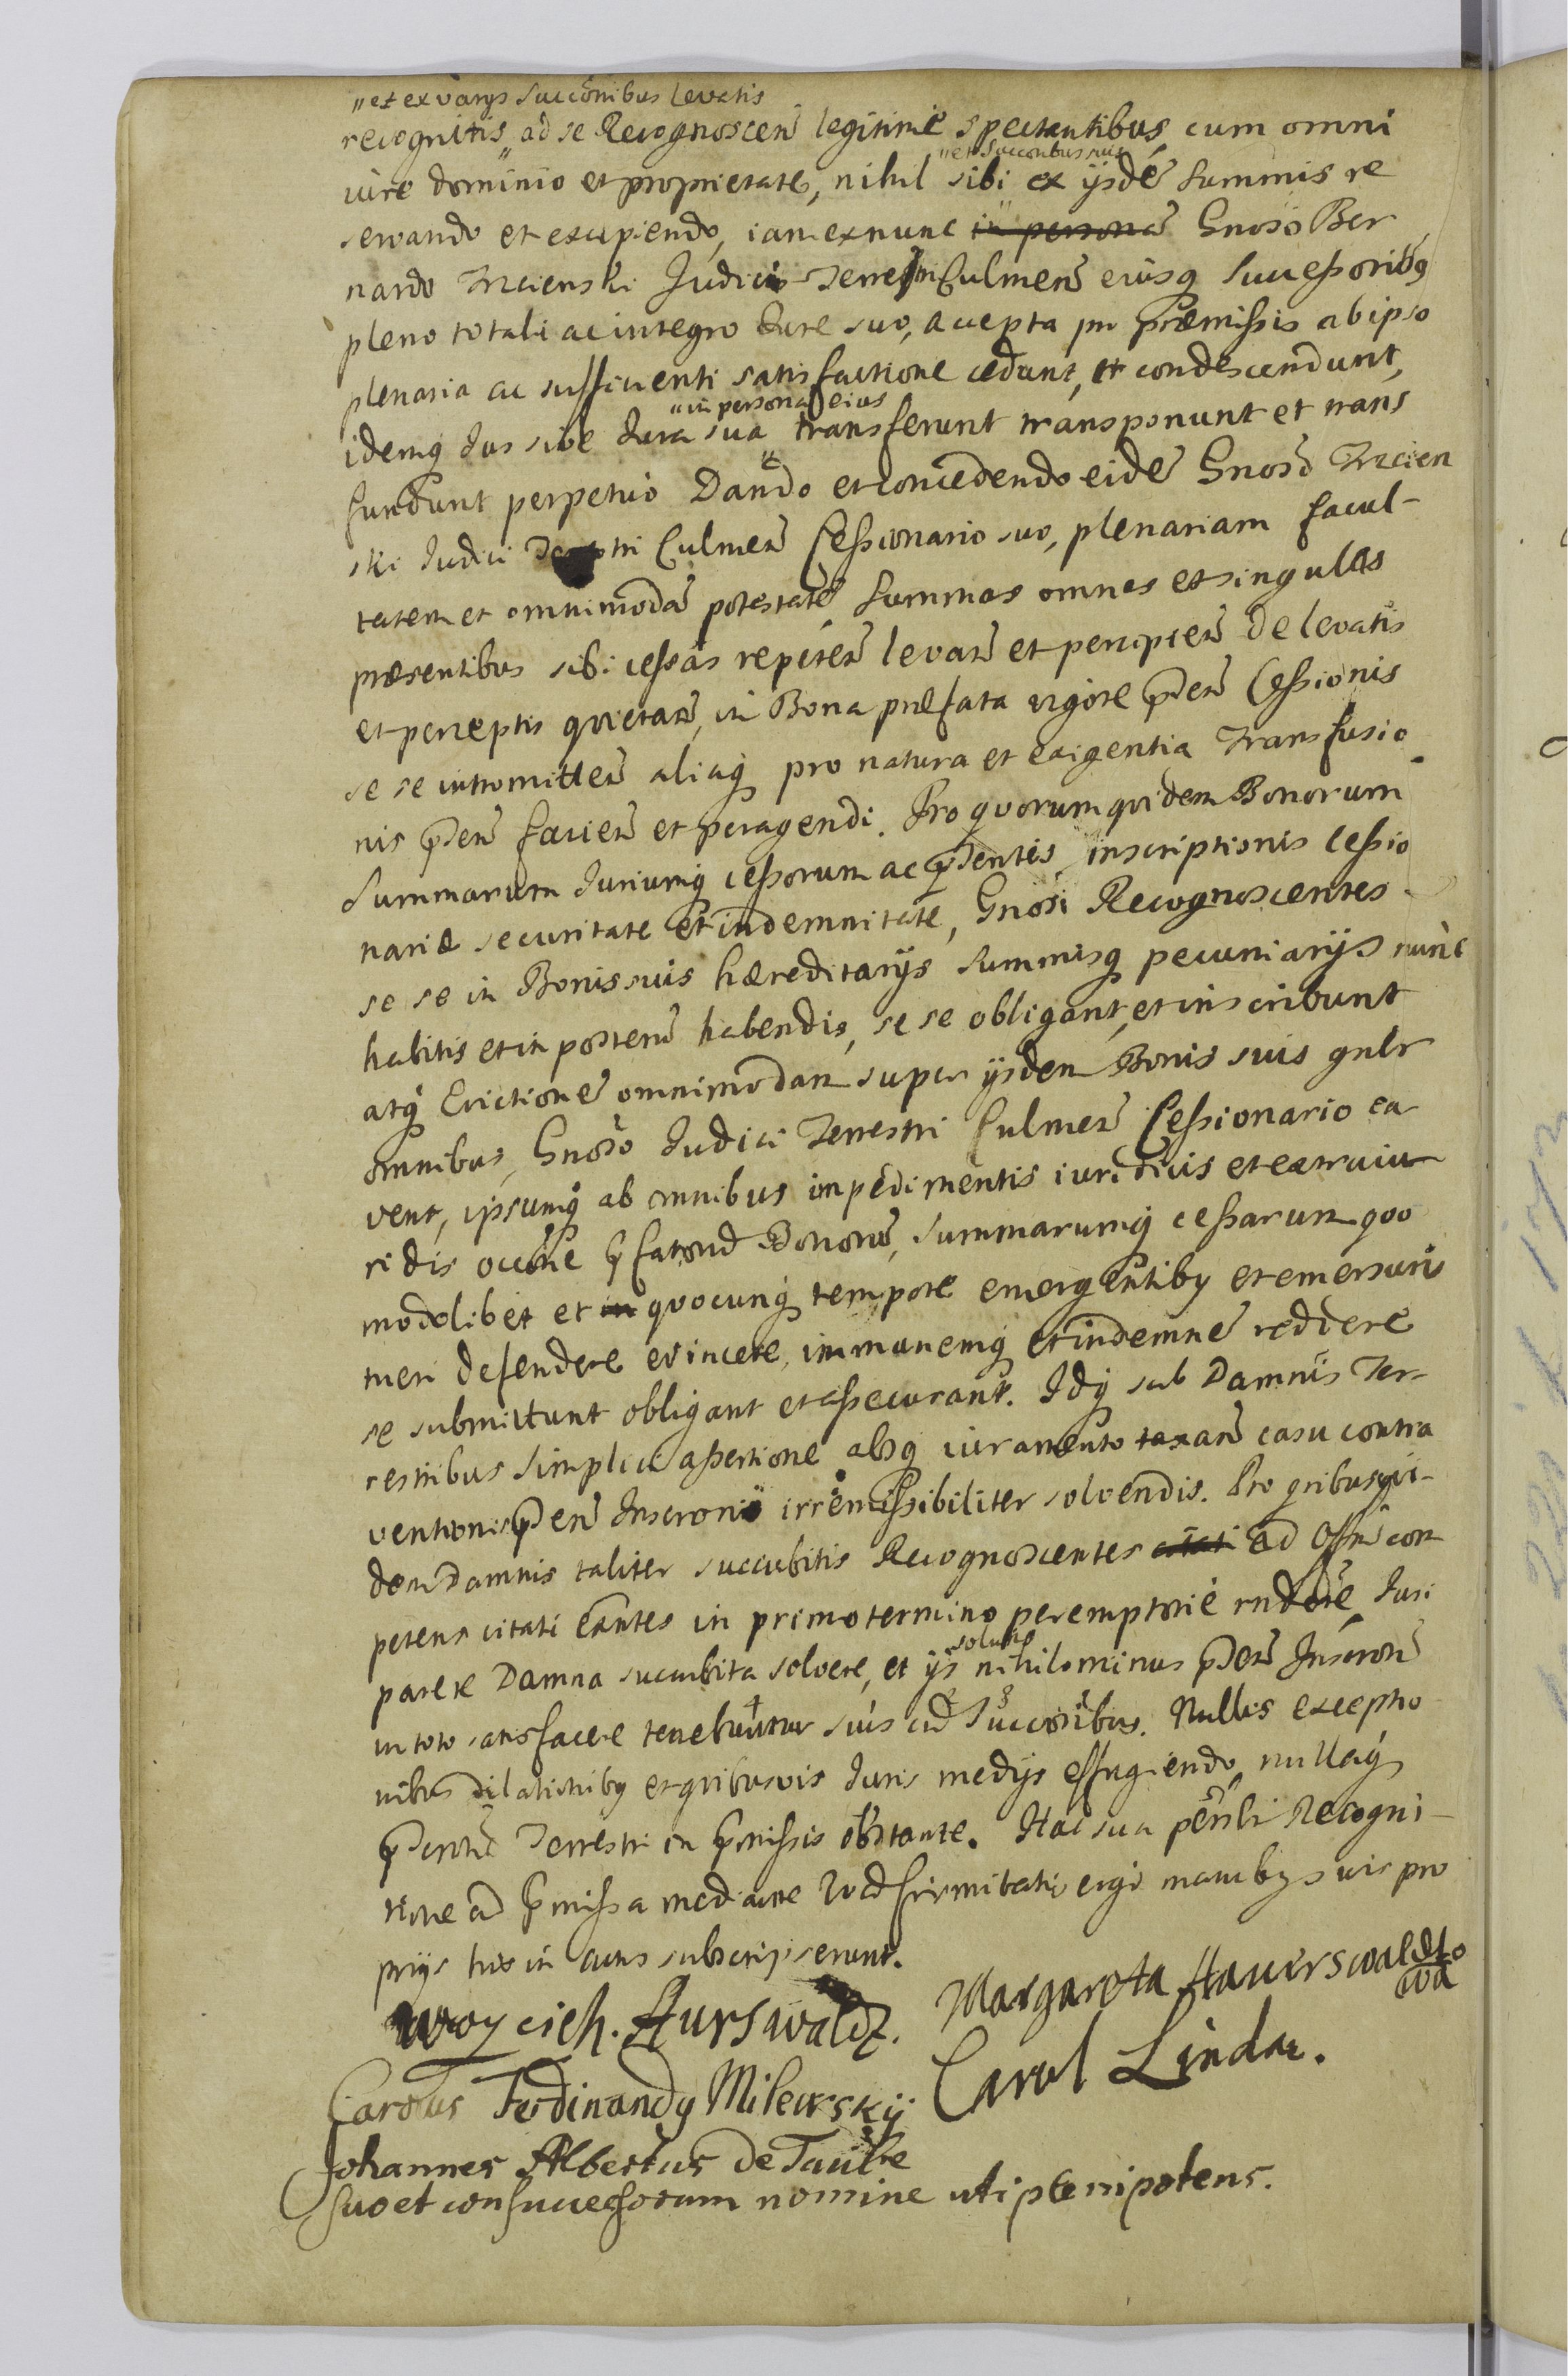 "et ex varys succönibus levatis
recognitis " ad se Recognoscen̄ legitimè spectantibus, cum omni
iure dominio et proprietate, nihil sibi "et succoribus suis ex ijsdē summis re
servando et excipiendo, iam ex nunc in personā Gnoso Ber
nardo Trzcienski Judici Terrestri Culmen̄ eiusq̨ Successoribq
pleno totali ac integro Jure suo, accepta pro præmissis ab ipso
plenaria ac sufficienti satisfactione cedunt, et condescendunt,
idemq̨ Jus sive Jura sua "in persona eius transferunt transponunt et trans
fundunt perpetuò Dando et concedendo eidē Gnoso Trzcien
ski Judici Terrestri Culmen̄ Cessionario suo, plenariam facul-
tatem et omnimodā potestatē Summas omnes et singulas
præsentibus sibi cessas repeten̄ levan̄ et percipien̄ de levatis
et perceptis quietan̄, in Bona præfata vigore p̄den̄ Cessionis
se se intromitten̄ aliaq̨ pro natura et exigentia Transfusio
nis p̄den̄ facien̄ et peragendi. Pro quorum quidem Bonorum
Summarum Juriumq̨ cessorum ac p̄dentis inscriptionis cessio
nariæ securitate et indemnitate, Gnosi Recognoscentes
se se in Bonis suis hæreditarijs summisq̨ pecuniarijs nunc
habitis et in posterū habendis, se se obligant, et inscribunt
atq̨ Evictionē omnimodam super ijsdem Bonis suis gnlr
omnibus, Gnoso Judici Terrestri Culmen̄ Cessionario ca
vent, ipsumq̨ ab omnibus impedimentis iuridicis et extraiu
ridis occōne p̄fatorū Bonorū, summarumq̨ cessarum quo
modolibet et in quocunq̨ tempore emergentibq et emersuris
tueri defendere evincere, immunemq̨ et indemnē reddere
se submittunt obligant et assecurant. Idq̨ sub Damnis Ter-
restribus simplici assertione absq̨ iuramento taxan̄ casu contra
ventionis p̄den̄ Inscronis irremissibiliter solvendis. Pro quibus qui-
dem Damnis taliter succubitis Recognoscentes citati ad Offm̄ com
petens citati exn̄tes in primo termino peremptoriè rndere, Juri
parere Damna succubita solvere, et ijs solutis nihilominus p̄den̄ Inscroni
in toto satisfacere tenebuntur suis cū Succoribus. Nullis exceptio
nibus dilationibq et quibusvis Juris medijs effugiendo, nullaq̨
p̄scrone Terrestri in p̄missis obstante. Hac sua personli Recogni-
tione ad p̄missa mediante quod firmitatis ergo manibq suis pro
prijs hic in actis subscripserunt.
Woyciech. Aurswaldt. Margareta Haverswaldto
wa
Carolus Ferdinandq Milewskij Carol Lindar.
Johannes Albertus de Taube
suo et consuccessorum nomine uti plenipotens.